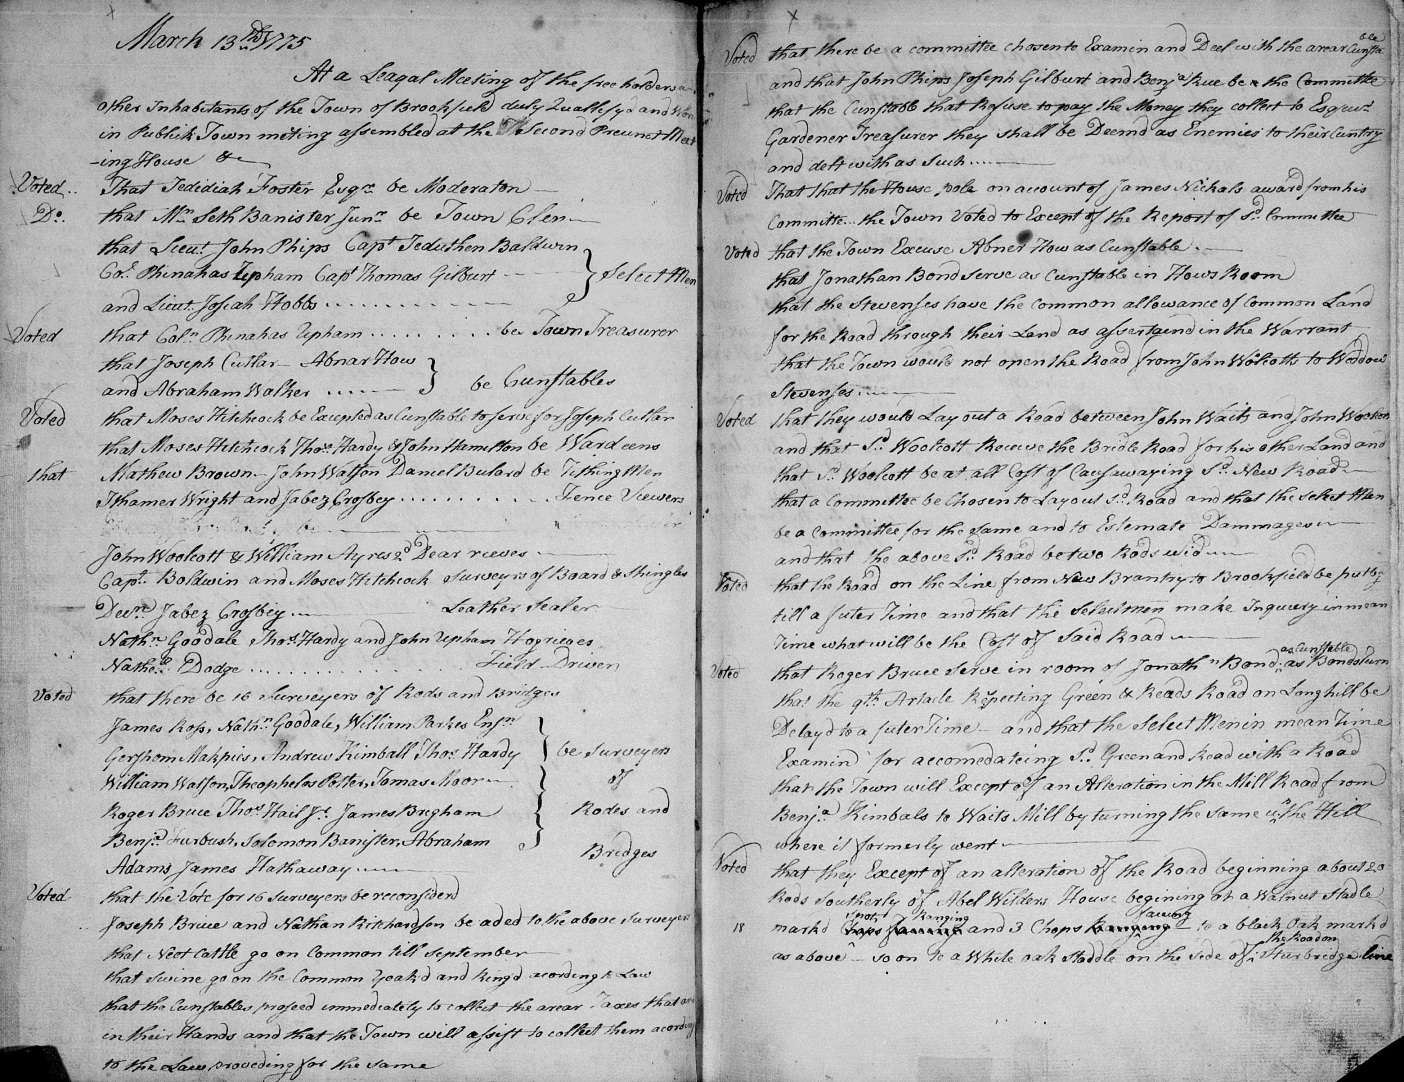 March 13th 1775
At a Leagal Meeting of the free holders a
other Inhabitants of the Town of Brookfield duly Qualifyd and
in Publick Town meting assembled at the Second Precinct Meet
-ing House &c
Voted.. That Jedidiah Foster Esqr. be Moderator
Do. that Mr. Seth Banister Junr. be Town Clerk
that Lieut. John Phips Capt Jeduthen Baldwin
Col. Phinahas Upham Capt Thomas Gilburt } Select Men
and Lieut. Josiah Hobbs
Voted that Coln. Phinahas Upham ......... be Town Treasurer
that Joseph Cutlar Abnar How
and Abraham Walker } be Cunstables
Voted that Moses Hitchcock be Excepted as Cunstable to serve for Joseph Cutlar
that Moses Hitchcock Thos. Hardy & John Hamilton be Wardeens
that Mathew Brown John Watson Daniel Bulard be Tithing Men
Ithamer Wright and Jabez Crosbey .......... Fence Viewers
John Woolcott & William Ayres 2d Dear reeves
Capt. Boldwin and Moses Hitchcock surveyrs of Board & Shingles
Decn. Jabez Crosbey Leather Sealer
Nathn. Goodale Thos. Hardy and John Upham Hogrieves
Nathel. Dodge .......... Field Driver
Voted that there be 16 Surveyers of Rods and Bridges
James Ross, Nathn. Goodale, William Parkes Ensn
Gersham Makpies, Andrew Kimball Thos. Hardy } be surveyers
William Watson, Theophelos Potter, Tomas Moor of
Roger Bruce Thos. Hail Jr. James Brigham Rodes and
Benja. Furbush, Solomon Banister, Abraham Bridges
Adams James Hathaway
Voted that the Vote for 16 surveyers be reconsiderd
Joseph Bruce and Nathan Richardson be aded to the above surveyers
that Neet Cattle go on Common till September
that swine go on the Common Yoak'd and Ring'd acording to Law
that the Cunstables proseed immediately to collect the arear Taxes that are
in their Hands and that the Town will assist to collect them acording
to the Law proveding for the same
Voted that there be a committee chosen to Examin and Deel with the arear Cunsta
ble
and that John Phips Joseph Gilburt and Benja Rue be the Committe
that the Cunstable that Refuse to pay the Money they collect to Esqeur.
Gardener Treasurer they shall be Deemd as Enemies to their Cuntry
and delt with as such
Voted That that the House pole on account of James Nichals award from his
Committe the Town Voted to Except of the Report of sd. Committee
Voted that the Town Excuse Abner How as Cunstable
that Jonathan Bond serve as Cunstable in Hows Room
that the Stevenses have the common allowance of Common Land
for the Road through their Land as assertaind in the Warrant
that the Town would not open the Road from John Wolcotts to Widdows
Stevenses
Voted that they would Lay out a Road between John Waits and John Woolcott
and that Sd Woolcott Receive the Bridle Road for his other Land and
that Sd. Woolcott be at all Cost of Causawaying Sd. New Road
that a Committee be Chosen to Lay out Sd. Road and that the Select Men
be a Committee for the same and to Estemate Dammages
and that the above Sd. Road be two Rods wid
Voted that the Road on the Line from New Brantry to Brookfield be put by
till a futer Time and that the selectmen make Inquiery in mean
Time what will be the Cost of Said Road
as Cunstable
Voted that Roger Bruce Serve in room of Jonathn Bond as Bonds turn
that the 9th Article Respecting Green & Reads Road on Long hill be
Delay'd to a futer Time and that the Select Men in mean Time
Examin for accomedateing Sd. Green and Read with a Road
that the Town will Except of an Alteration in the Mill Road from
Benja Kimbals to Waits Mill by turning the same up the Hill
where it formerly went
Voted that they Except of an alteration of the Road beginning about 20
Rods Southerly of Abel Wilders House begining at a Walnut Stadle
spots Ranging faceing
18 markd and 3 Chops Ranging to a black Oak mark'd
the Road on
as above so on to a White oak Staddle on the side of Sturbridge line